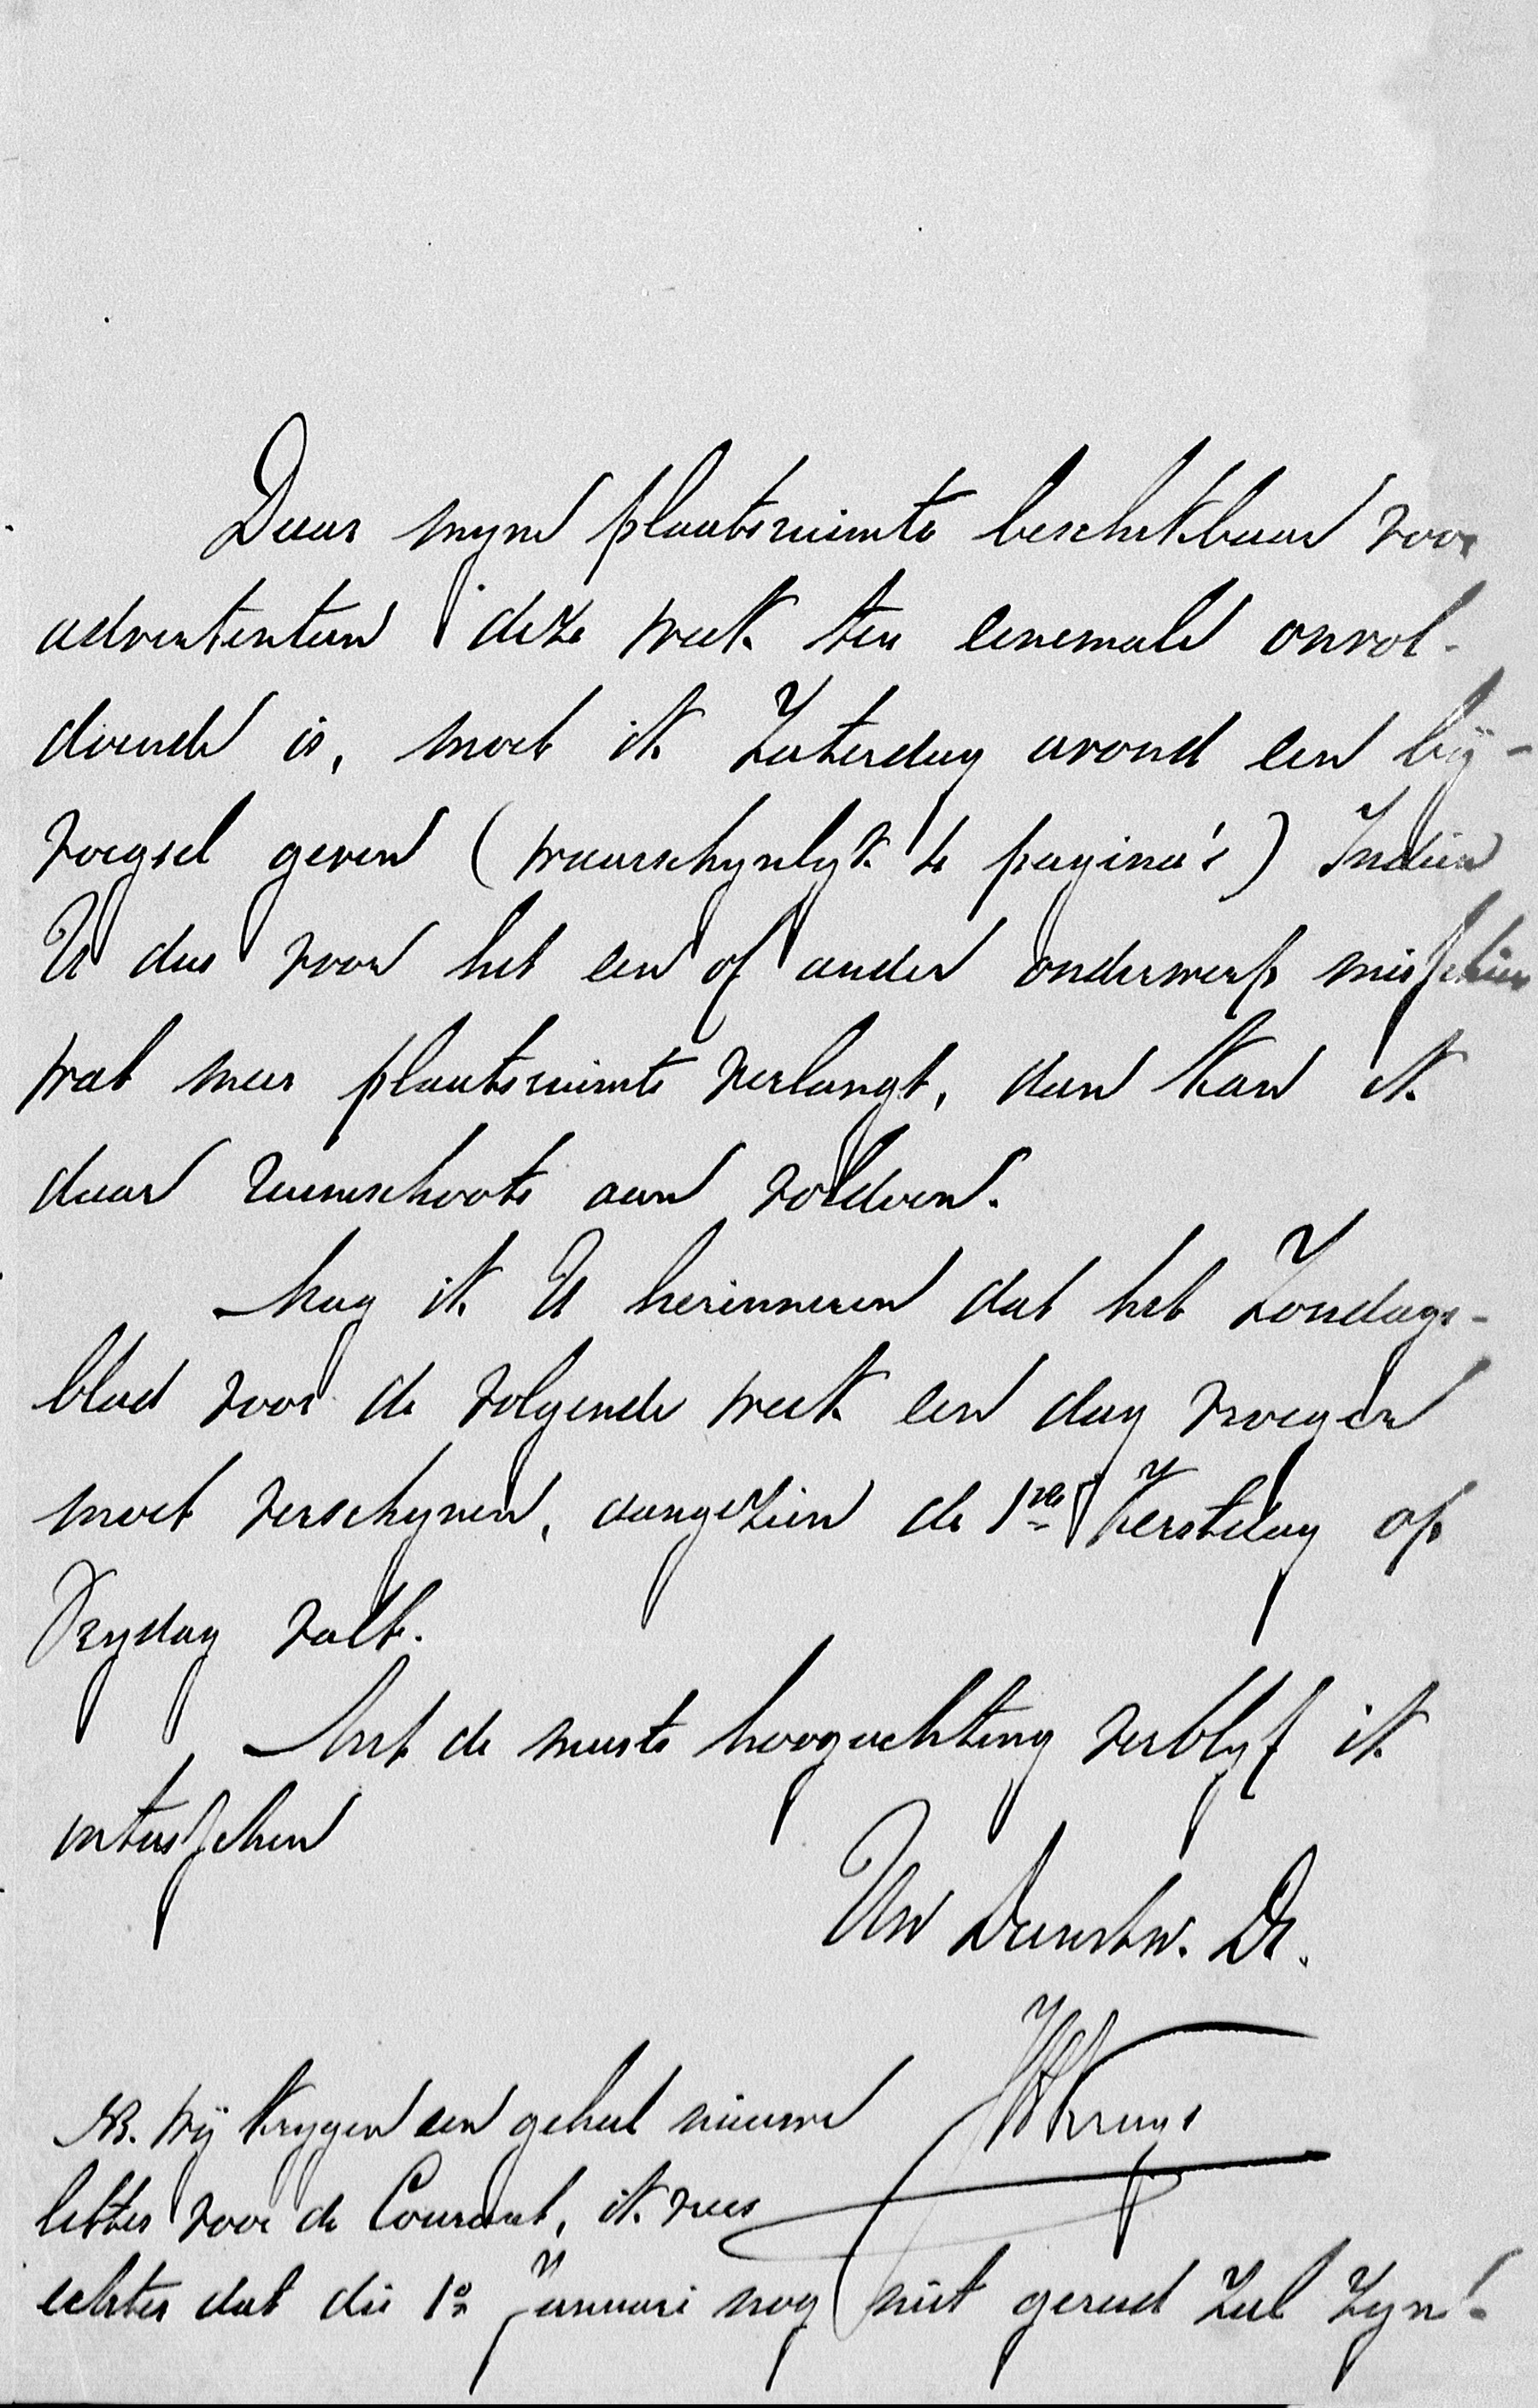 Daar mijne plaatsruimte beschikbaar voor
advertentien deze week ten eenemale onvol-
doende is, moet ik Zaterdag avond een bij-
voegsel geven (waarschynlyk 4 pagina's) Indien
U dus voor het een of ander onderwerp misschien
wat meer plaatsruimte verlangt, dan kan ik
daar ruimschoots aan voldoen.
Mag ik U herinneren dat het Zondags-
blad voor de volgende week een dag vroeger
moet verschynen, aangezien de 1ste Kerstdag op
Vrydag valt.
Met de meeste hoogachting verblyf ik
intusschen
Uw Dienstw. Dr.
NB. Wij krygen een geheel nieuwe
letter voor de Courant, ik vrees
echter dat die 1o Januari nog niet gereed zal zyn!